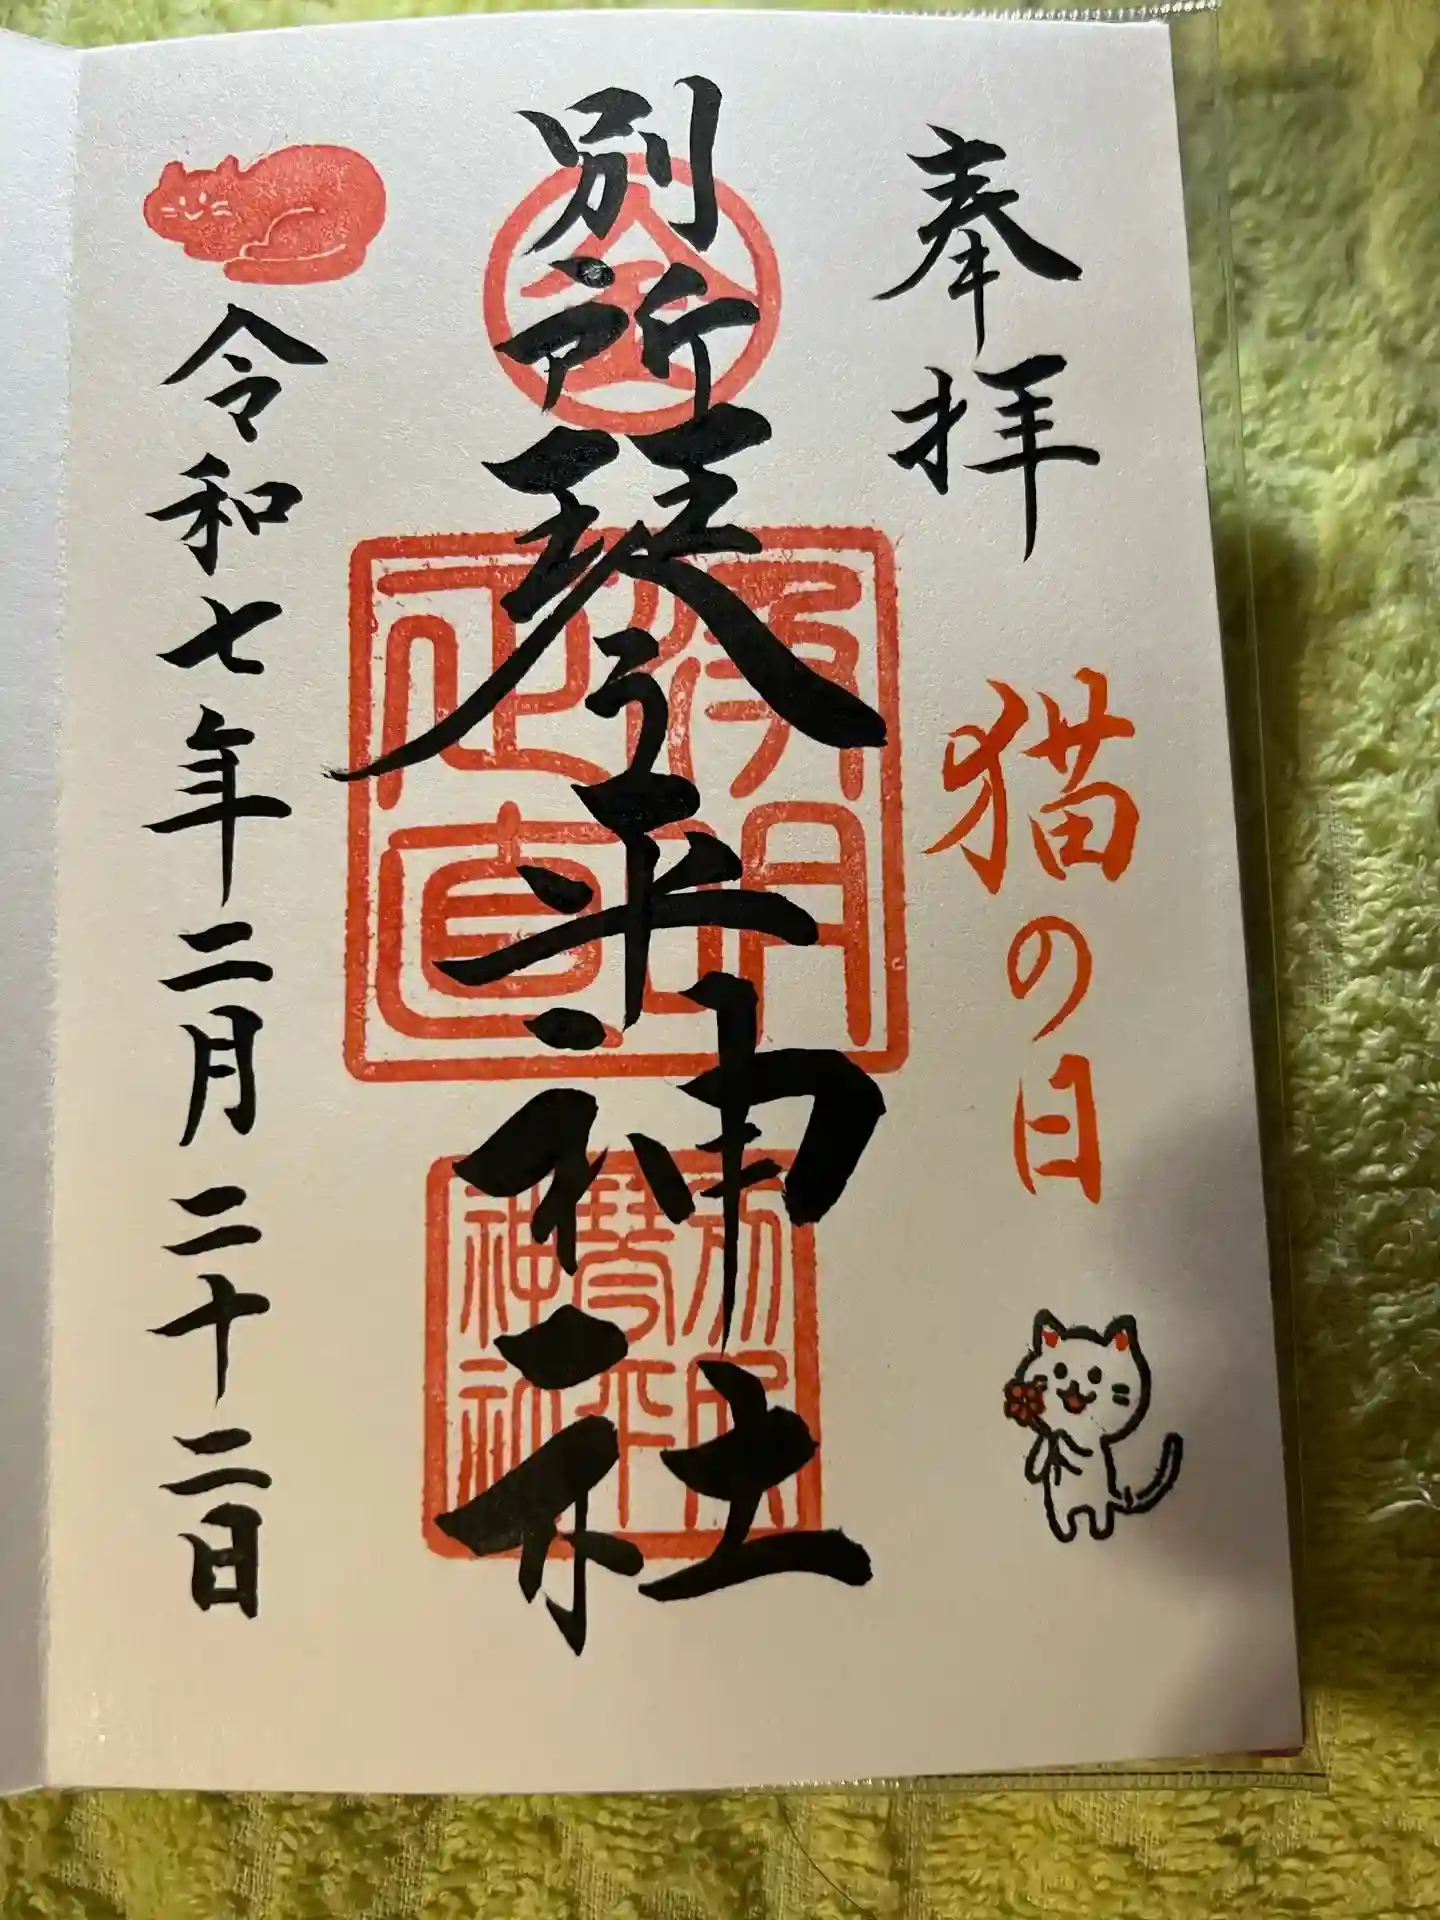 奉拝
猫の日
別所琴平神社
令和七年二月二十二日
金
清明正直
別所琴平神社